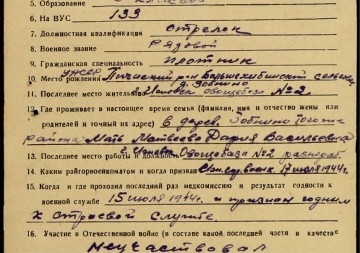 5. Образование
6. На ВУС 133
7. Должностная квалификация стрелок
8. Военное звание Рядовой
9. Гражданская специальность плотник
10. Место рождения
11. Последнее место жительства обозобаза №2
12. Где проживает в настоящее время семья (фамилия, имя и отчество жены или
родителей и точный их адрес) в дерев.
района Мать Матвеева Дария Васильевна
13. Последнее место работы и должность Обозобаза №2
14. Каким райгорвоенкоматом и когда призван 17 июля 1944 г.
15. Когда и где проходил последний раз медкомиссию и результат годности к
военной службе 15 июля 1944 г. и признан годным
к строевой службе
16. Участие в Отечественной войне (в составе какой последней части и в качестве
Неучаствовал